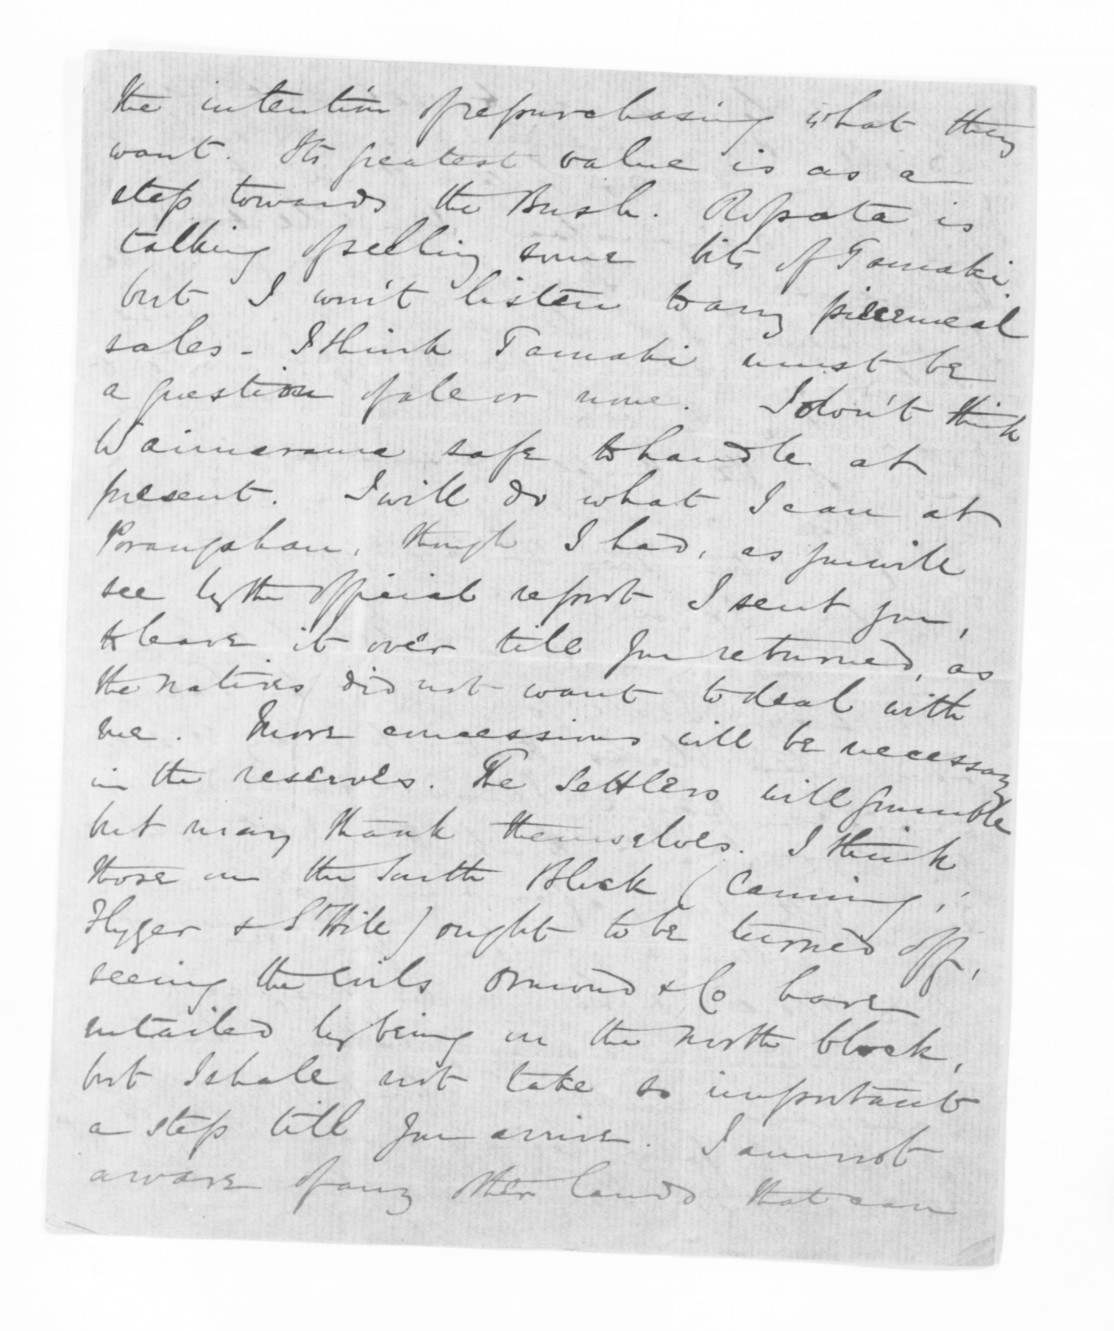 the intention of repurchasing what they
want. Its greatest value is as a
step towards the Bush. Ropata is
talking of selling some bits of Tamaki
but I won't listen to any piecemeal
sales - I think Tamaki must be
a question of all or none. I don't think
Waimarama safe to handle at
present. I will do what I can at
Porangahau, though I had, as you will
see by the official report I sent you,
to leave it over till you returned, as
the natives did not want to deal with
me. More concessions will be necessary
in the reserves. The settlers will grumble
but may thank themselves. I think
those on the South Block (Canning,
& St Hill) ought to be turned off,
seeing the evils Ormond & Co have
entailed by being on the North block,
but I shall not take so important
a step till you arrive. I am not
aware of any other lands that can